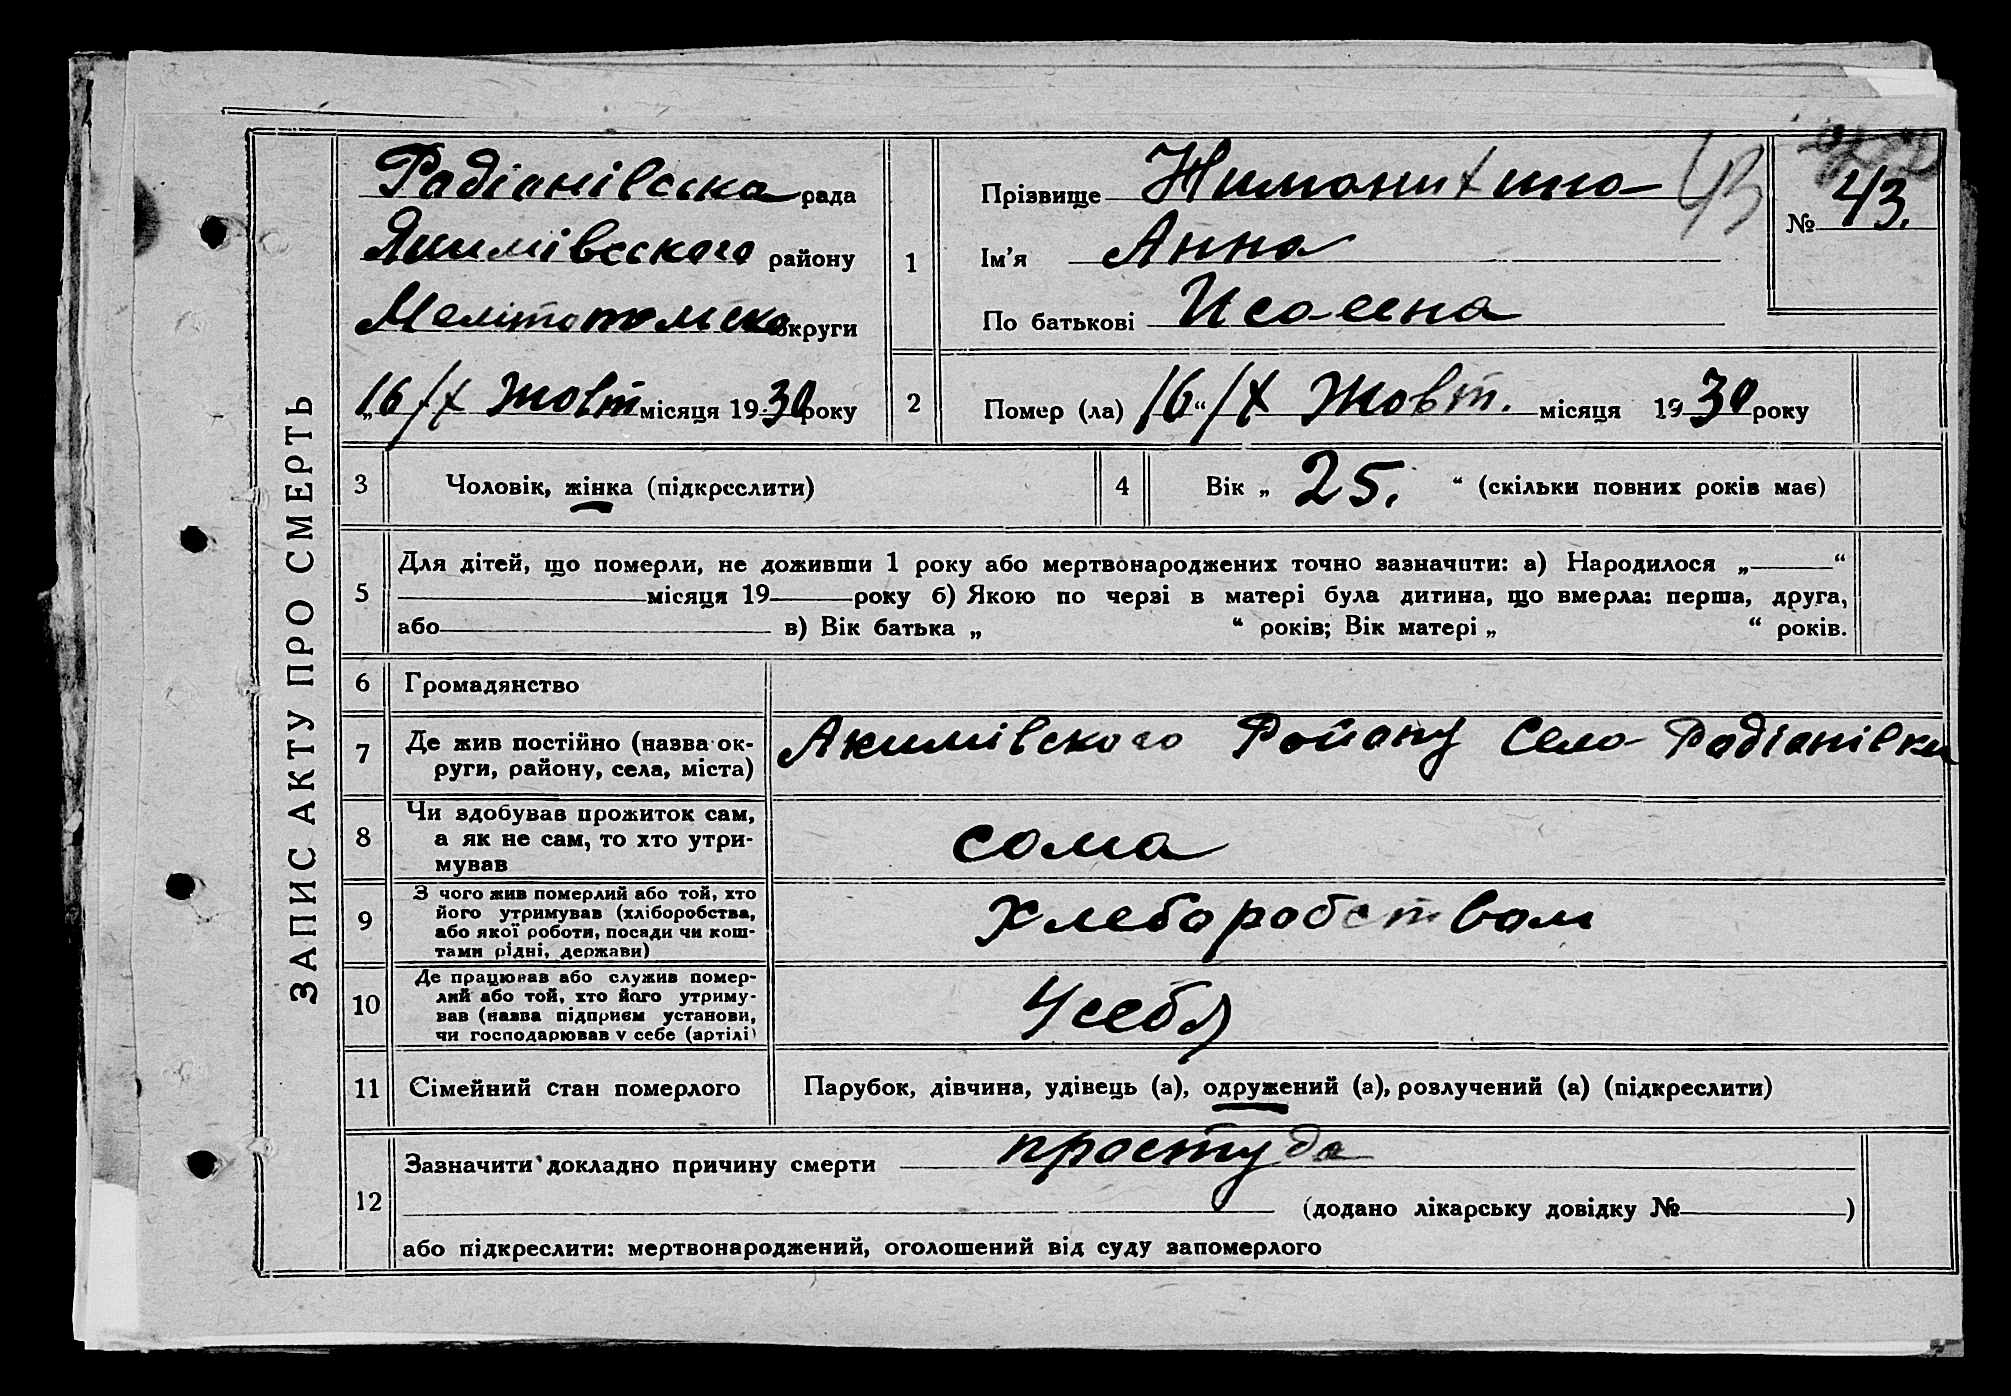 ЗАПИС АКТУ ПРО СМЕРТЬ
Радіанівська рада
Якимівського району
округи
„16/X Жовт місяця 1930 року
1
Прізвище
43
№ 43.
Ім'я Анна
По батькові
2
Помер (ла) 16“/X Жовт. місяця 1930 року
3
Чоловік, жінка (підкреслити)
4
Вік „ 25. “ (скільки повних років має)
5
Для дітей, що померли, не доживши 1 року або мертвонароджених точно зазначити: а) Народилося „ “
місяця 19 року б) Якою по черзі в матері була дитина, що вмерла: перша, друга,
або в) Вік батька „ “ років; Вік матері „ “ років.
6
Громадянство
7
Де жив постійно (назва ок-
руги, району, села, міста)
Акимівского Району Село Радіанівки
8
Чи здобував прожиток сам,
а як не сам, то хто утри-
мував
сома
9
З чого жив померлий або той, хто
його утримував (хліборобства,
або якої роботи, посади чи кош-
тами рідні, держави)
Хлеборобством
10
Де працював або служив помер-
лий або той, хто його утриму-
вав (назва підприєм установи,
чи господарював у себе (артілі)
У себя
11
Сімейний стан померлого
Парубок, дівчина, удівець (а), одружений (а), розлучений (а) (підкреслити)
12
Зазначити докладно причину смерти простуда
(додано лікарську довідку № )
або підкреслити: мертвонароджений, оголошений від суду запомерлого